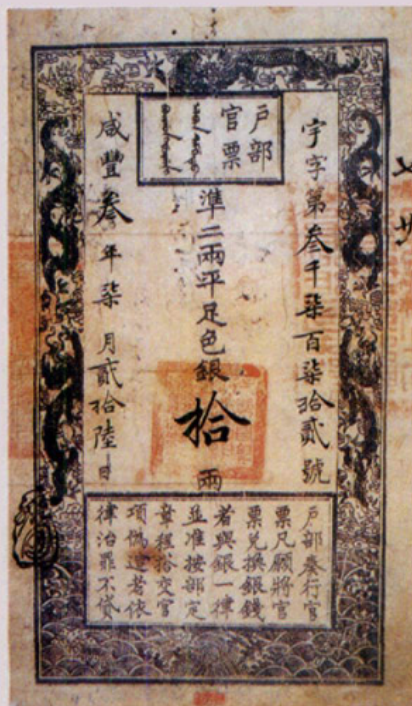 戶部
官票
宇字第叁千柒百柒拾貳號
準二兩平足色銀拾兩
咸豐叁年柒月貳拾陸日
戶部奏行官
票凡願將官
票兌換銀錢
者與銀一律
並准按部定
章程搭交官
項偽造者依
律治罪不貸